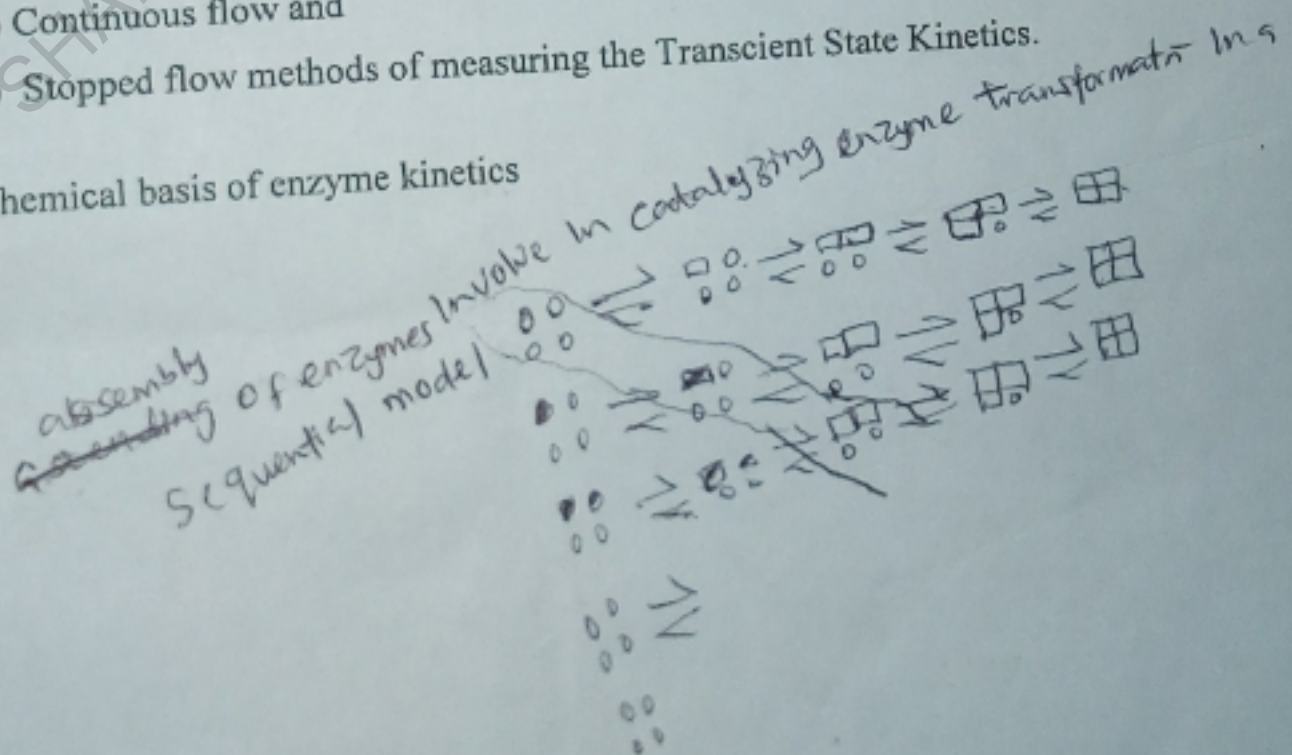 Continuous flow and
Stopped flow methods of measuring the Transcient State Kinetics.
hemical basis of enzyme kinetics
assembly of enzymes Involve in catalyzing enzyme transformatn In a
Sequential model
SHA